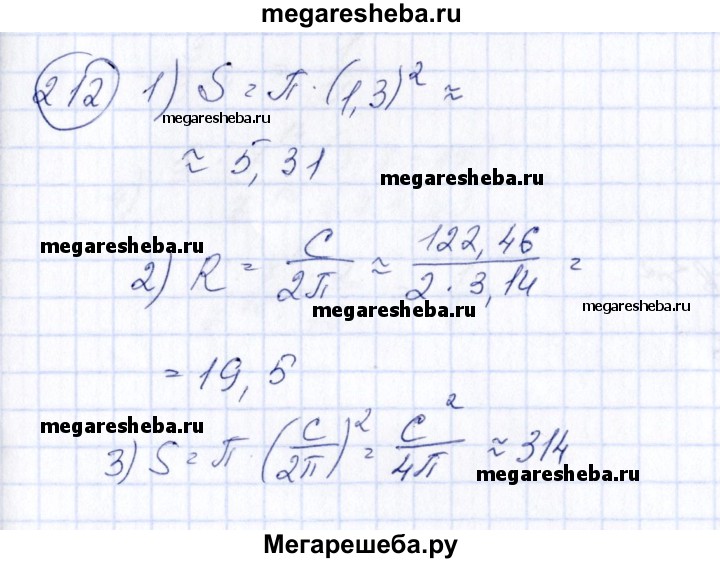 megaresheba.ru
212 1) S = π · (1,3)² ≈
megaresheba.ru
≈ 5,31
megaresheba.ru
megaresheba.ru
2) R = C/2π ≈ 122,46/2·3,14 =
megaresheba.ru
megaresheba.ru
= 19,5
megaresheba.ru
3) S = π · (C/2π)² = C²/4π ≈ 314
megaresheba.ru
Мегарешеба.ру